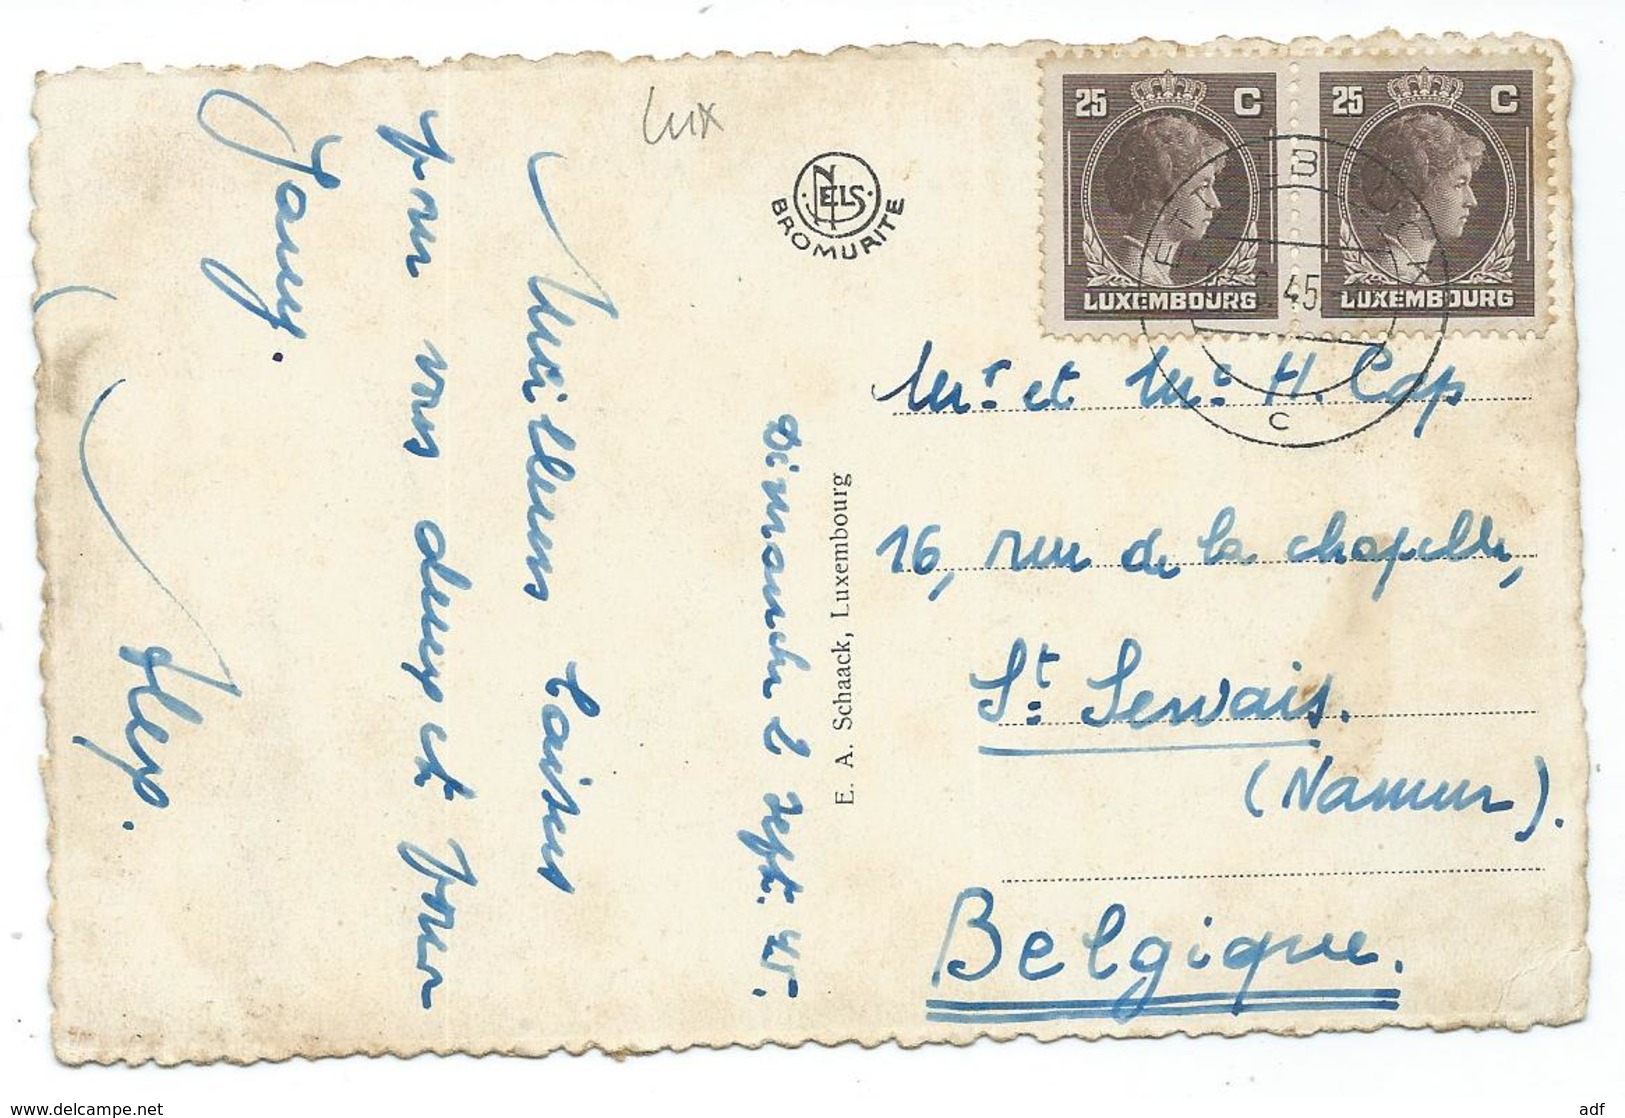 Dimanche 2 Sept. 45.
Meilleurs baisers
pour vous deux et pour
Jany.
lux
NELS
BROMURITE
E. A. Schaack, Luxembourg
25 C
LUXEMBOURG
25 C
LUXEMBOURG
45
C
Mr. et Me. H. Cap
16, rue de la chapelle,
St. Servais.
(Namur).
Belgique.
www.delcampe.net
adf